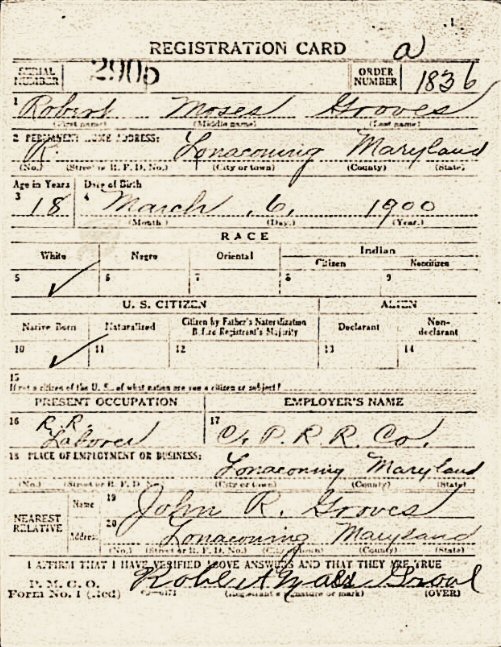 1
REGISTRATION CARD a
SERIAL NUMBER 2905 ORDER NUMBER 1836
1 Robert Moses Groves
(First name) (Middle name) (Last name)
2 PERMANENT HOME ADDRESS:
R. Lonaconing Maryland
(No.) (Street or R. F. D. No.) (City or town) (County) (State)
Age in Years Date of Birth
3 18 4 March 6, 1900
(Month.) (Day.) (Year.)
RACE
White Negro Oriental Indian
Citizen Noncitizen
5 ✓ 6 7 8 9
U. S. CITIZEN ALIEN
Native Born Naturalized Citizen by Father's Naturalization Before Registrant's Majority Declarant Non-declarant
10 ✓ 11 12 13 14
15
If not a citizen of the U. S., of what nation are you a citizen or subject?
PRESENT OCCUPATION EMPLOYER'S NAME
16 R. R. Laborer 17 C. P. R. R. Co.
18 PLACE OF EMPLOYMENT OR BUSINESS:
Lonaconing Maryland
(No.) (Street or R. F. D. No.) (City or town) (County) (State)
NEAREST RELATIVE Name 19 John R. Groves
Address 20 Lonaconing Maryland
(No.) (Street or R. F. D. No.) (City or town) (County) (State)
I AFFIRM THAT I HAVE VERIFIED ABOVE ANSWERS AND THAT THEY ARE TRUE
P. M. G. O.
Form No. 1 (Red) (Registrant's signature or mark) (OVER)
Robert